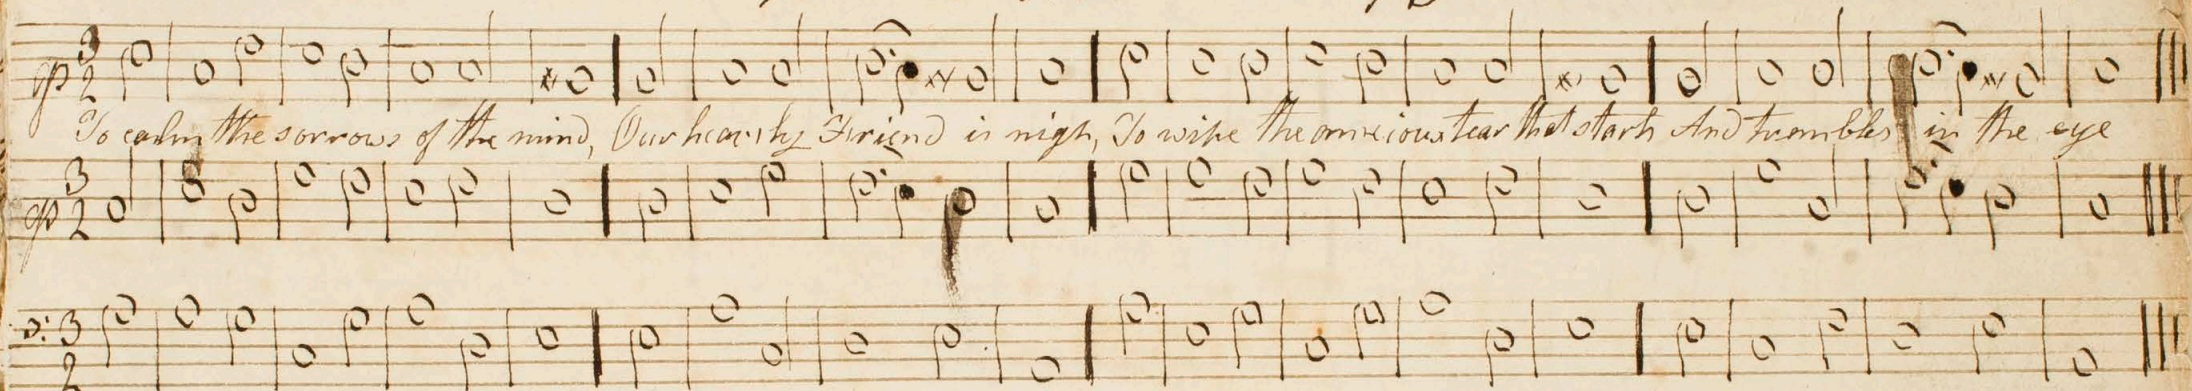 3
2
To calm the sorrows of the mind, Our heav'nly Friend is nigh, To wipe the anxious tear that starts And trembles in the eye
3
2
3
2